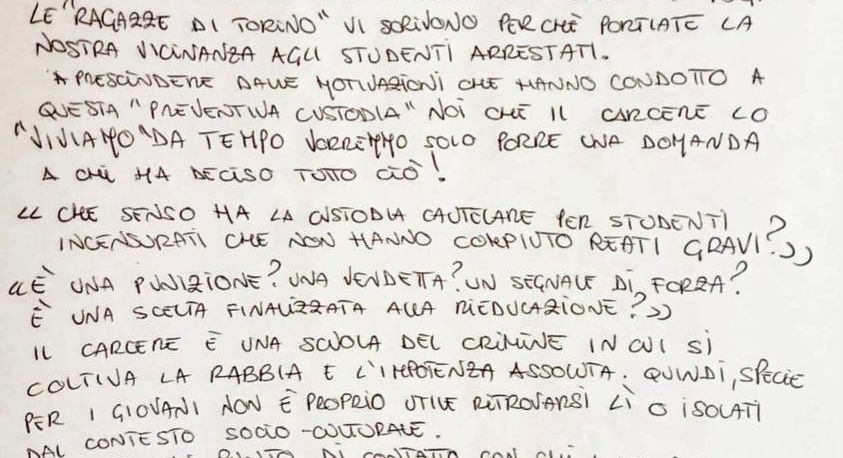 LE "RAGAZZE DI TORINO" VI SCRIVONO PERCHÈ PORTIATE LA
NOSTRA VICINANZA AGLI STUDENTI ARRESTATI.
A PRESCINDERE DALLE MOTIVAZIONI CHE HANNO CONDOTTO A
QUESTA "PREVENTIVA CUSTODIA" NOI CHE IL CARCERE LO
"VIVIAMO" DA TEMPO VORREMMO SOLO PORRE UNA DOMANDA
A CHI HA DECISO TUTTO CIÒ!
<< CHE SENSO HA LA CUSTODIA CAUTELARE PER STUDENTI
INCENSURATI CHE NON HANNO COMPIUTO REATI GRAVI? >>
<< È UNA PUNIZIONE? UNA VENDETTA? UN SEGNALE DI FORZA?
È UNA SCELTA FINALIZZATA ALLA RIEDUCAZIONE? >>
IL CARCERE È UNA SCUOLA DEL CRIMINE IN CUI SI
COLTIVA LA RABBIA E L'IMPOTENZA ASSOLUTA. QUINDI, SPECIE
PER I GIOVANI NON È PROPRIO UTILE RITROVARSI LÌ O ISOLATI
DAL CONTESTO SOCIO-CULTURALE.
PUNTO DI CONTATTO CON CHI